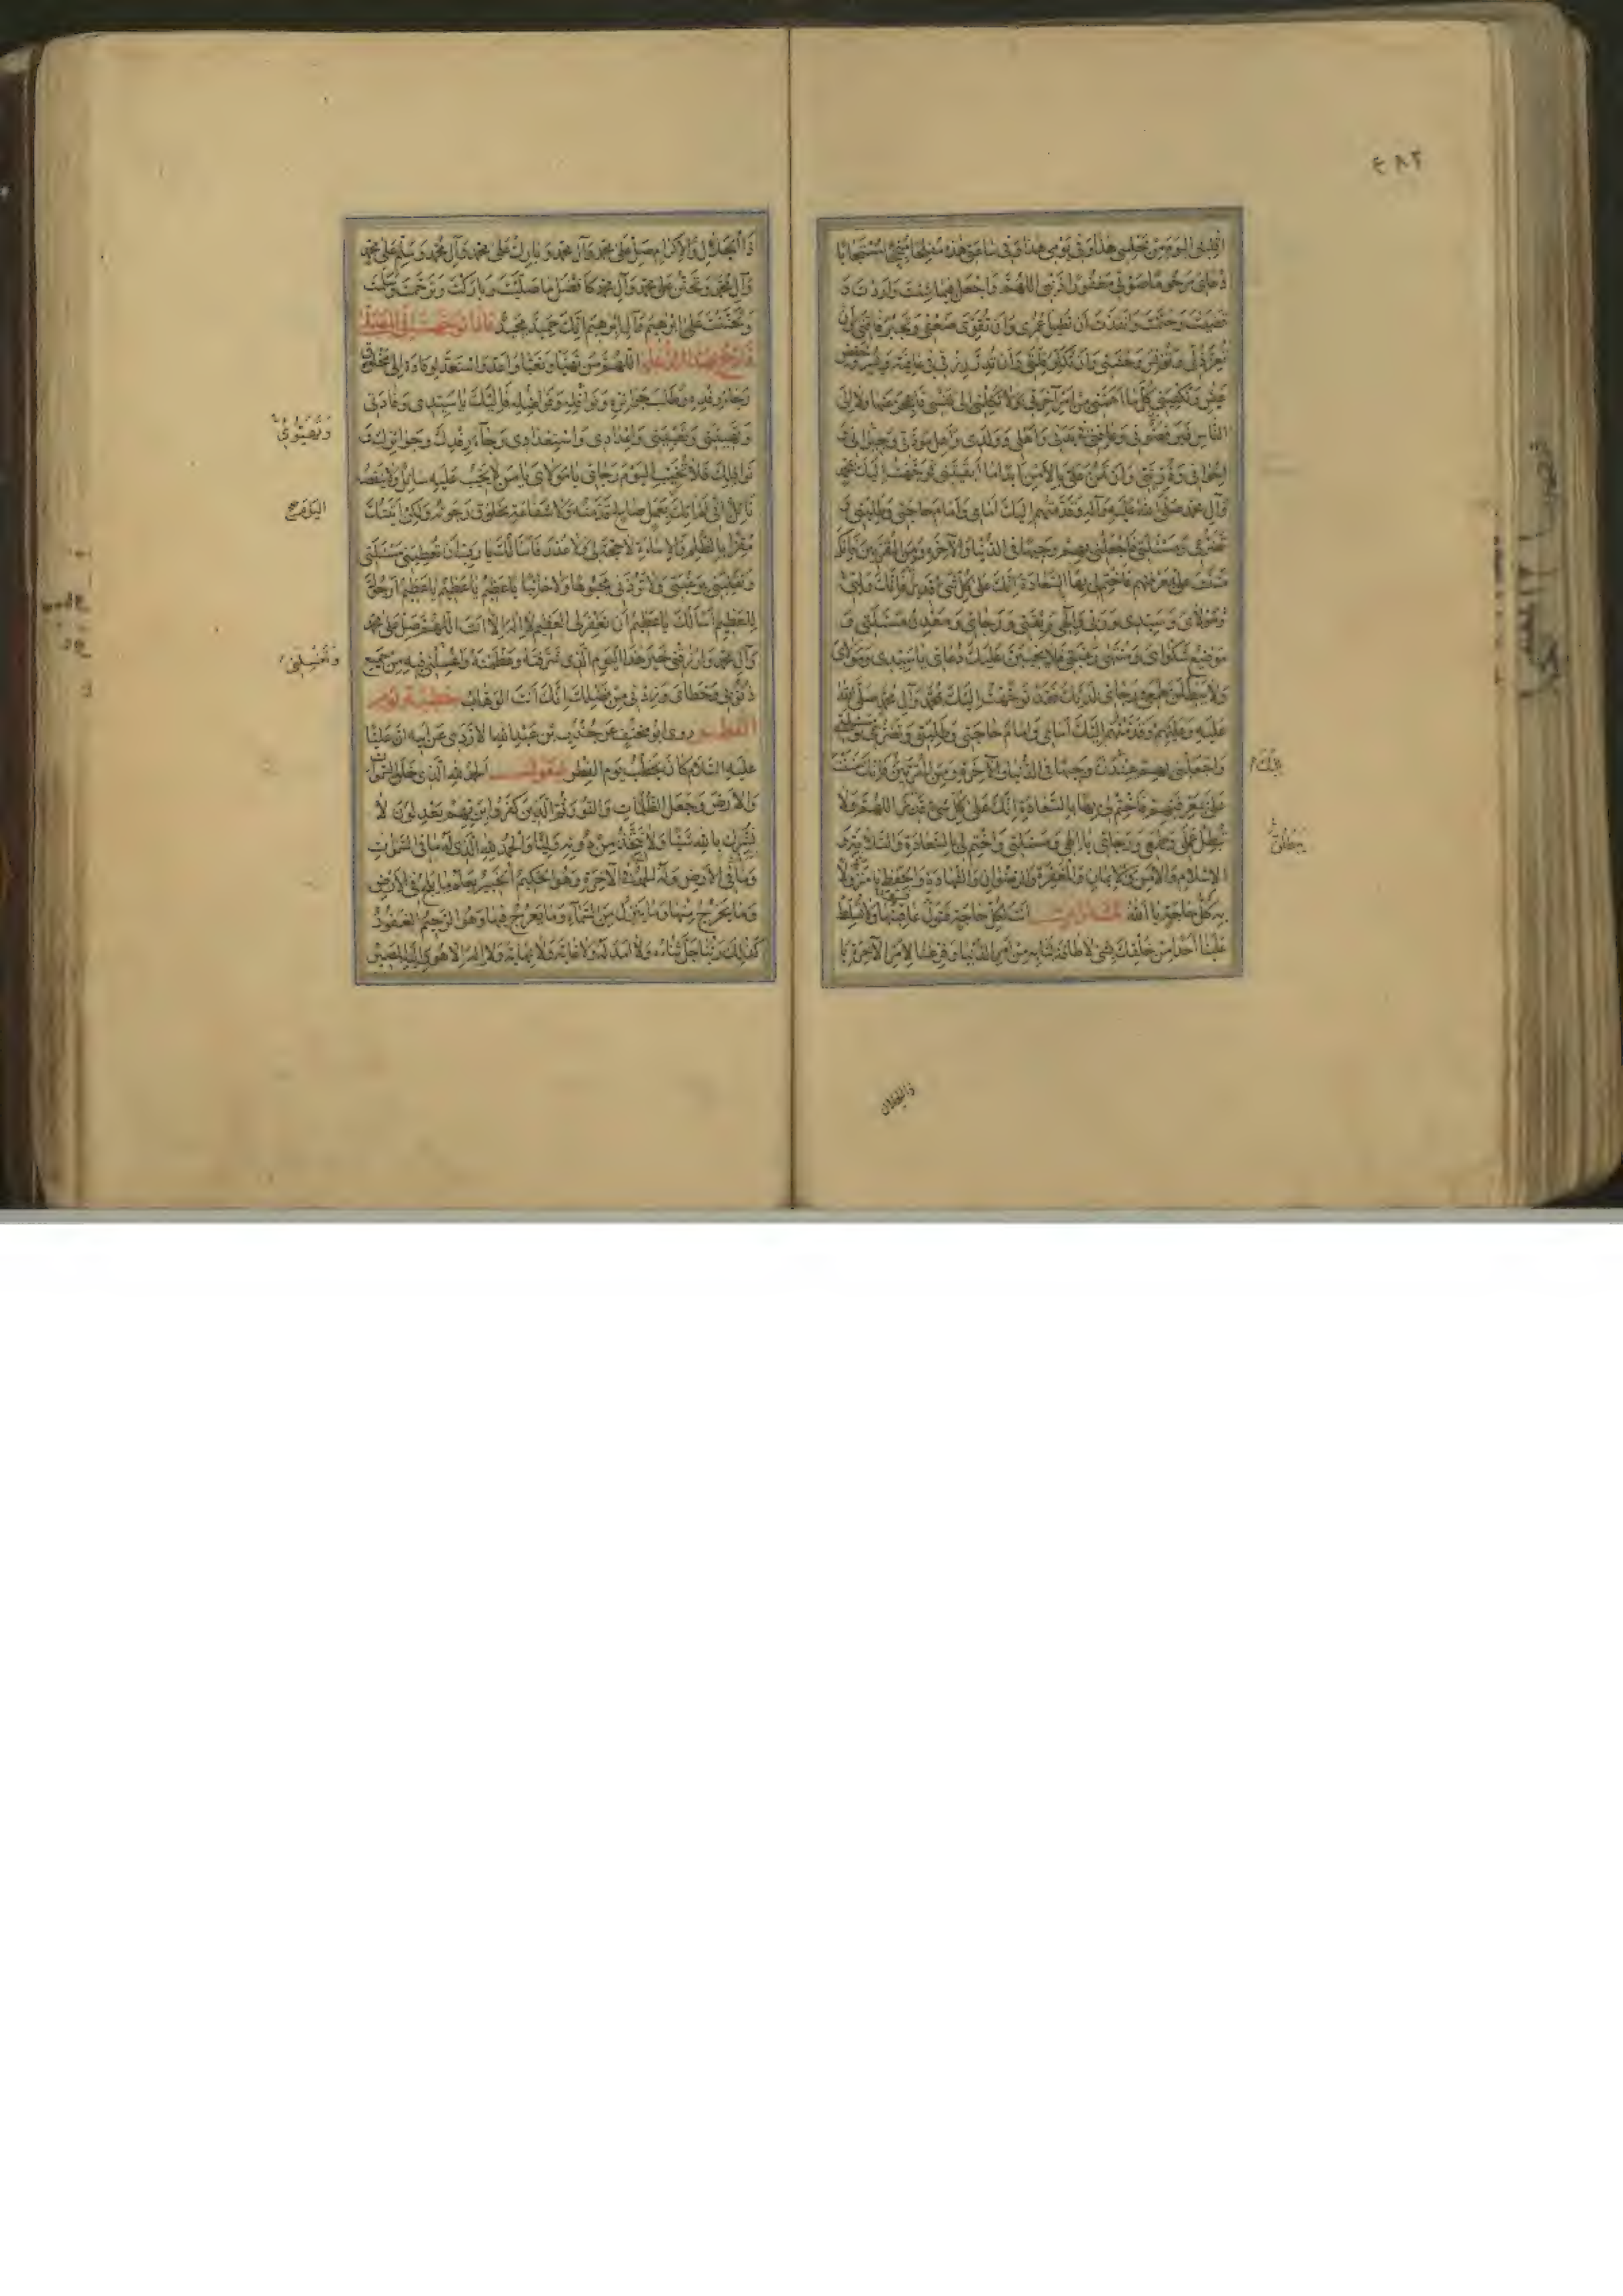 ٤٨٢
اقلبني اليوم من مجلسي هذا وفي يومي هذا وفي ساعتي هذه مفلحا منجحا مستجابا
دعائي مرحوما صوتي مغفورا ذنبي اللهم واجعل فيما شئت واردت و
قضيت وحتمت وانفذت ان تطيل عمري وان تقوي ضعفي وتجبر فاقتي وان
تعز ذلي وتؤنس وحشتي وان تكثر قلتي وان تدر رزقي في عافية ويسر وخفض
عيش وتكفيني كل ما اهمني من امر آخرتي ولا تكلني الى نفسي فاعجز عنها ولا الى
الناس فيرفضوني وعافني في بدني واهلي وولدي واهل مودتي وجيراني و
اخواني وذريتي وان تمن علي بالامن ابدا ما ابقيتني توجهت اليك بمحمد
وآل محمد صلى الله عليه وآله وقدمتهم اليك امامي وامام حاجتي وطلبتي و
تضرعي ومسئلتي فاجعلني بهم وجيها في الدنيا والآخرة ومن المقربين فانك
مننت علي بمعرفتهم فاختم لي بها السعادة انك على كل شيء قدير فانك وليي
ومولاي وسيدي وربي والهي وثقتي ورجائي ومعدن مسئلتي و
موضع شكواي ومنتهى رغبتي فلا يخيبن عليك دعائي يا سيدي ومولاي
ولا يبطلن طمعي ورجائي لديك فقد توجهت اليك بمحمد وآل محمد صلى الله
عليه وعليهم وقدمتهم اليك امامي وامام حاجتي وطلبتي وتضرعي ومسئلتي
واجعلني بهم عندك وجيها في الدنيا والآخرة ومن المقربين فانك مننت
علي بمعرفتهم فاختم لي بها بالسعادة انك على كل شيء قدير اللهم ولا
تبطل عملي وطمعي ورجائي يا الهي ومسئلتي واختم لي بالسعادة والسلامة و
الاسلام والامن والايمان والمغفرة والرضوان والشهادة والحفظ يا منزولا
به كل حاجة يا الله انت لكل حاجة فتول عافيتها ولا تسلط
علينا احدا من خلقك بشيء لا طاقة لنا به من امر الدنيا وفرغنا لامر الآخرة يا
ذا الجلال
ذا الجلال والاكرام صل على محمد وآل محمد وبارك على محمد وآل محمد وسلم على محمد
وآل محمد وتحنن على محمد وآل محمد كافضل ما صليت وباركت وترحمت وسلمت
وتحننت على ابرهيم وآل ابرهيم انك حميد مجيد فاذا توجهت الى المصلى
فادع بهذا الدعاء اللهم من تهيا وتعبا واعد واستعد لوفادة الى مخلوق
رجاء رفده وطلب جوائزه ونوافله وفواضله فاليك يا سيدي وفادتي
وتهيئتي وتعبيتي واعدادي واستعدادي رجاء رفدك وجوائزك و
نوافلك فلا تخيب اليوم رجائي يا مولاي يا من لا يخيب عليه سائل ولا ينقصه
نائل اني لم آتك بعمل صالح قدمته ولا شفاعة مخلوق رجوته ولكن اتيتك
مقرا بالظلم والاساءة لا حجة لي ولا عذر فاسالك يا رب ان تعطيني مسئلتي
وتقلبني برغبتي ولا تردني مجبوها ولا خائبا يا عظيم يا عظيم يا عظيم ارجوك
للعظيم اسالك يا عظيم ان تغفر لي العظيم لا اله الا انت اللهم صل على محمد
وآل محمد وارزقني خير هذا اليوم الذي شرفته وعظمته واغسلني فيه من جميع
ذنوبي وخطاي وزدني من فضلك انك انت الوهاب خطبة يوم
الفطر روى ابو مخنف عن جندب بن عبد الله الازدي عن ابيه ان عليا
عليه السلام كان يخطب يوم الفطر فيقول الحمد لله الذي خلق السموات
والارض وجعل الظلمات والنور ثم الذين كفروا بربهم يعدلون لا
نشرك بالله شيئا ولا نتخذ من دونه وليا والحمد لله الذي له ما في السموات
وما في الارض وله الحمد في الآخرة وهو الحكيم الخبير يعلم ما يلج في الارض
وما يخرج منها وما ينزل من السماء وما يعرج فيها وهو الرحيم الغفور
كذلك ربنا جل ثناؤه ولا امد له ولا غاية ولا نهاية ولا اله الا هو واليه المصير